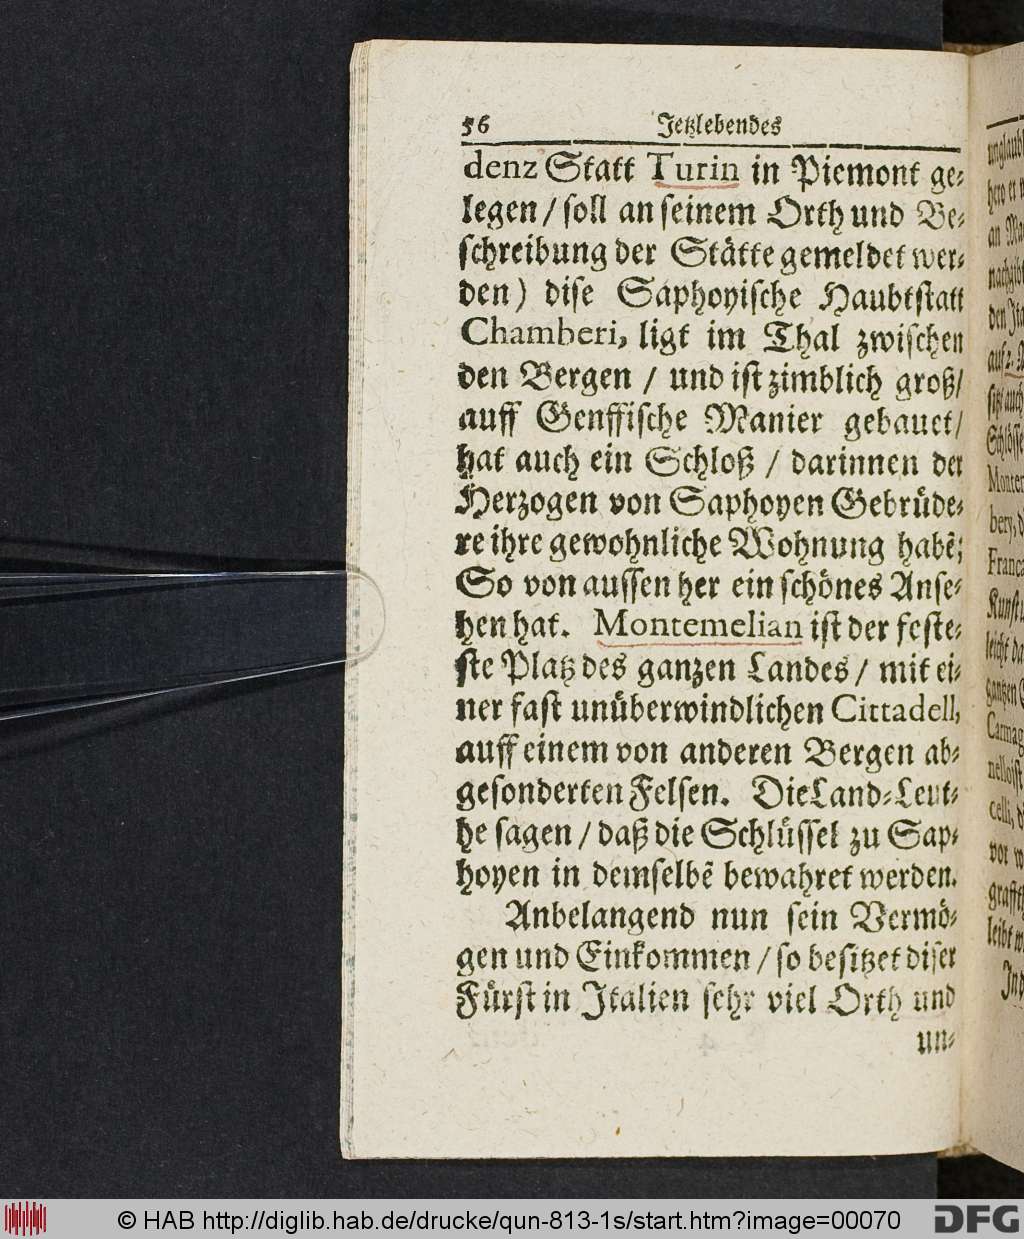 56 Jetzlebendes
denz Statt Turin in Piemont ge-
legen / soll an seinem Orth und Be-
schreibung der Stätte gemeldet wer-
den) dise Saphoyische Haubtstatt
Chamberi, ligt im Thal zwischen
den Bergen / und ist zimblich groß /
auff Genffische Manier gebauet /
hat auch ein Schloß / darinnen der
Herzogen von Saphoyen Gebrüde-
re ihre gewohnliche Wohnung habẽ;
So von aussen her ein schönes Anse-
hen hat. Montemelian ist der feste-
ste Platz des ganzen Landes / mit ei-
ner fast unüberwindlichen Cittadell,
auff einem von anderen Bergen ab-
gesonderten Felsen. Die Land-Leut-
he sagen / daß die Schlüssel zu Sap-
hoyen in demselbẽ bewahret werden.
Anbelangend nun sein Vermö-
gen und Einkommen / so besitzet diser
Fürst in Italien sehr viel Orth und
un-
© HAB http://diglib.hab.de/drucke/qun-813-1s/start.htm?image=00070
DFG